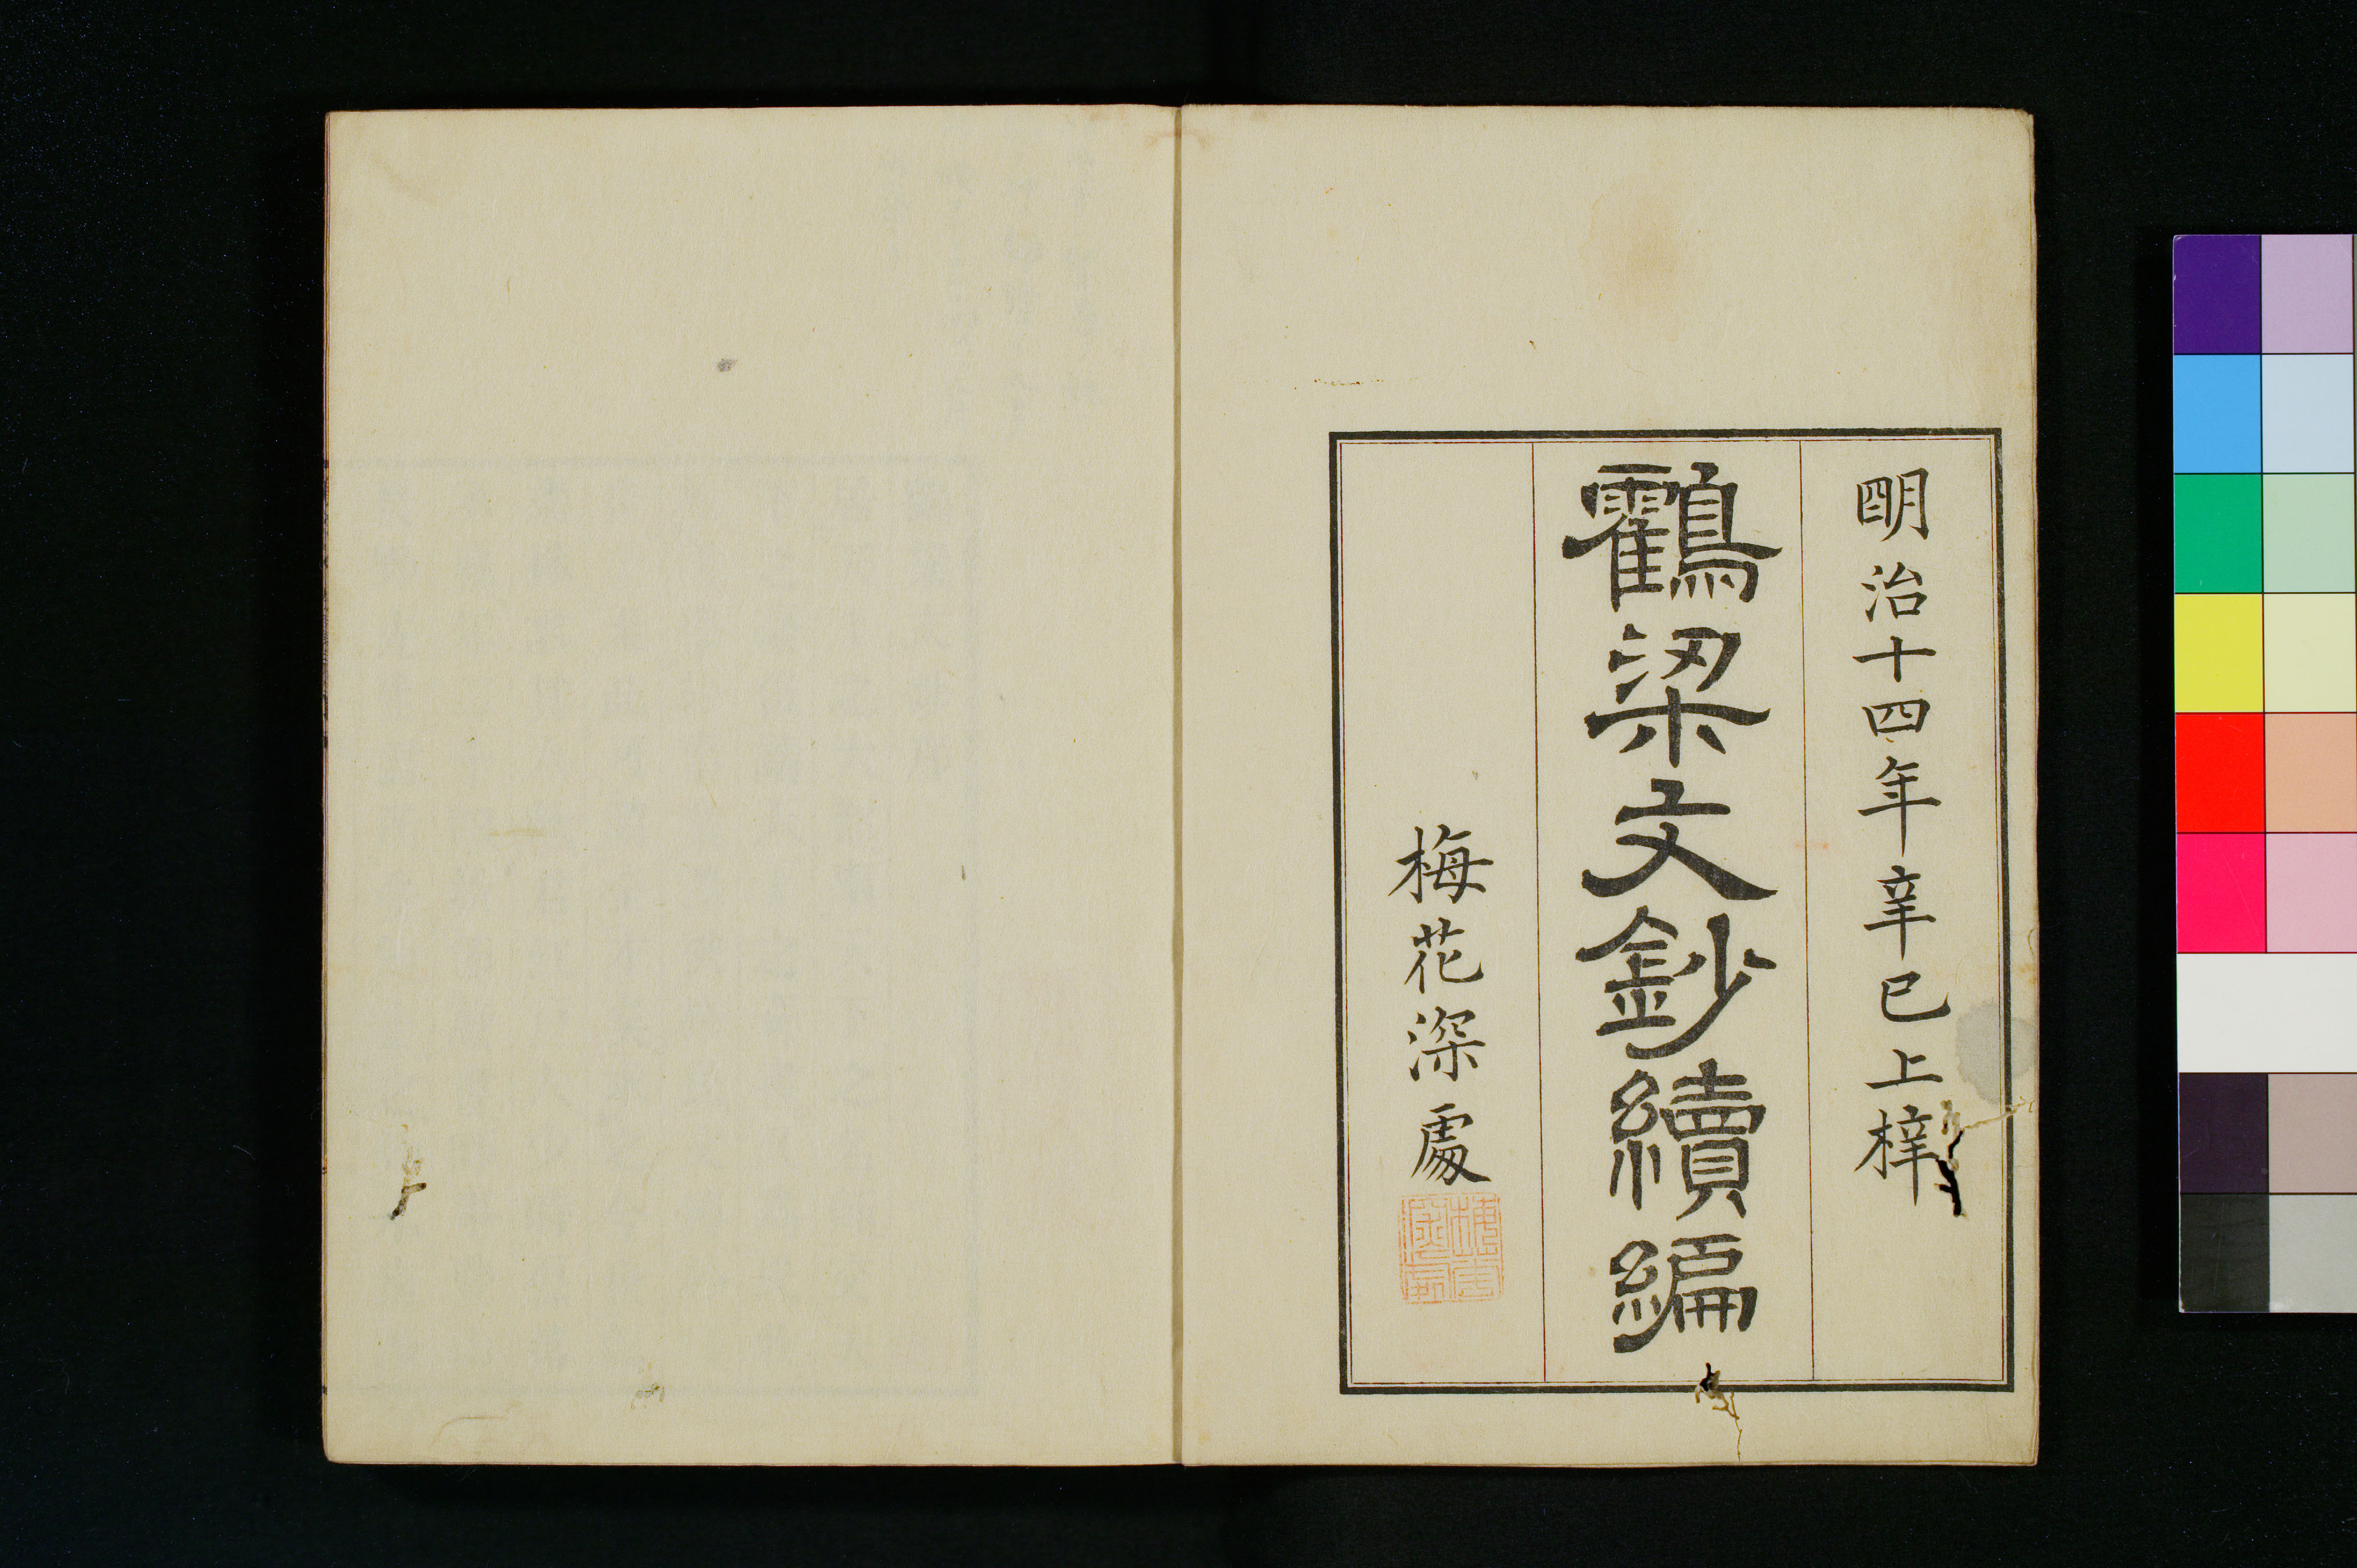 明治十四年辛巳上梓
鶴梁文鈔續編
梅花深處